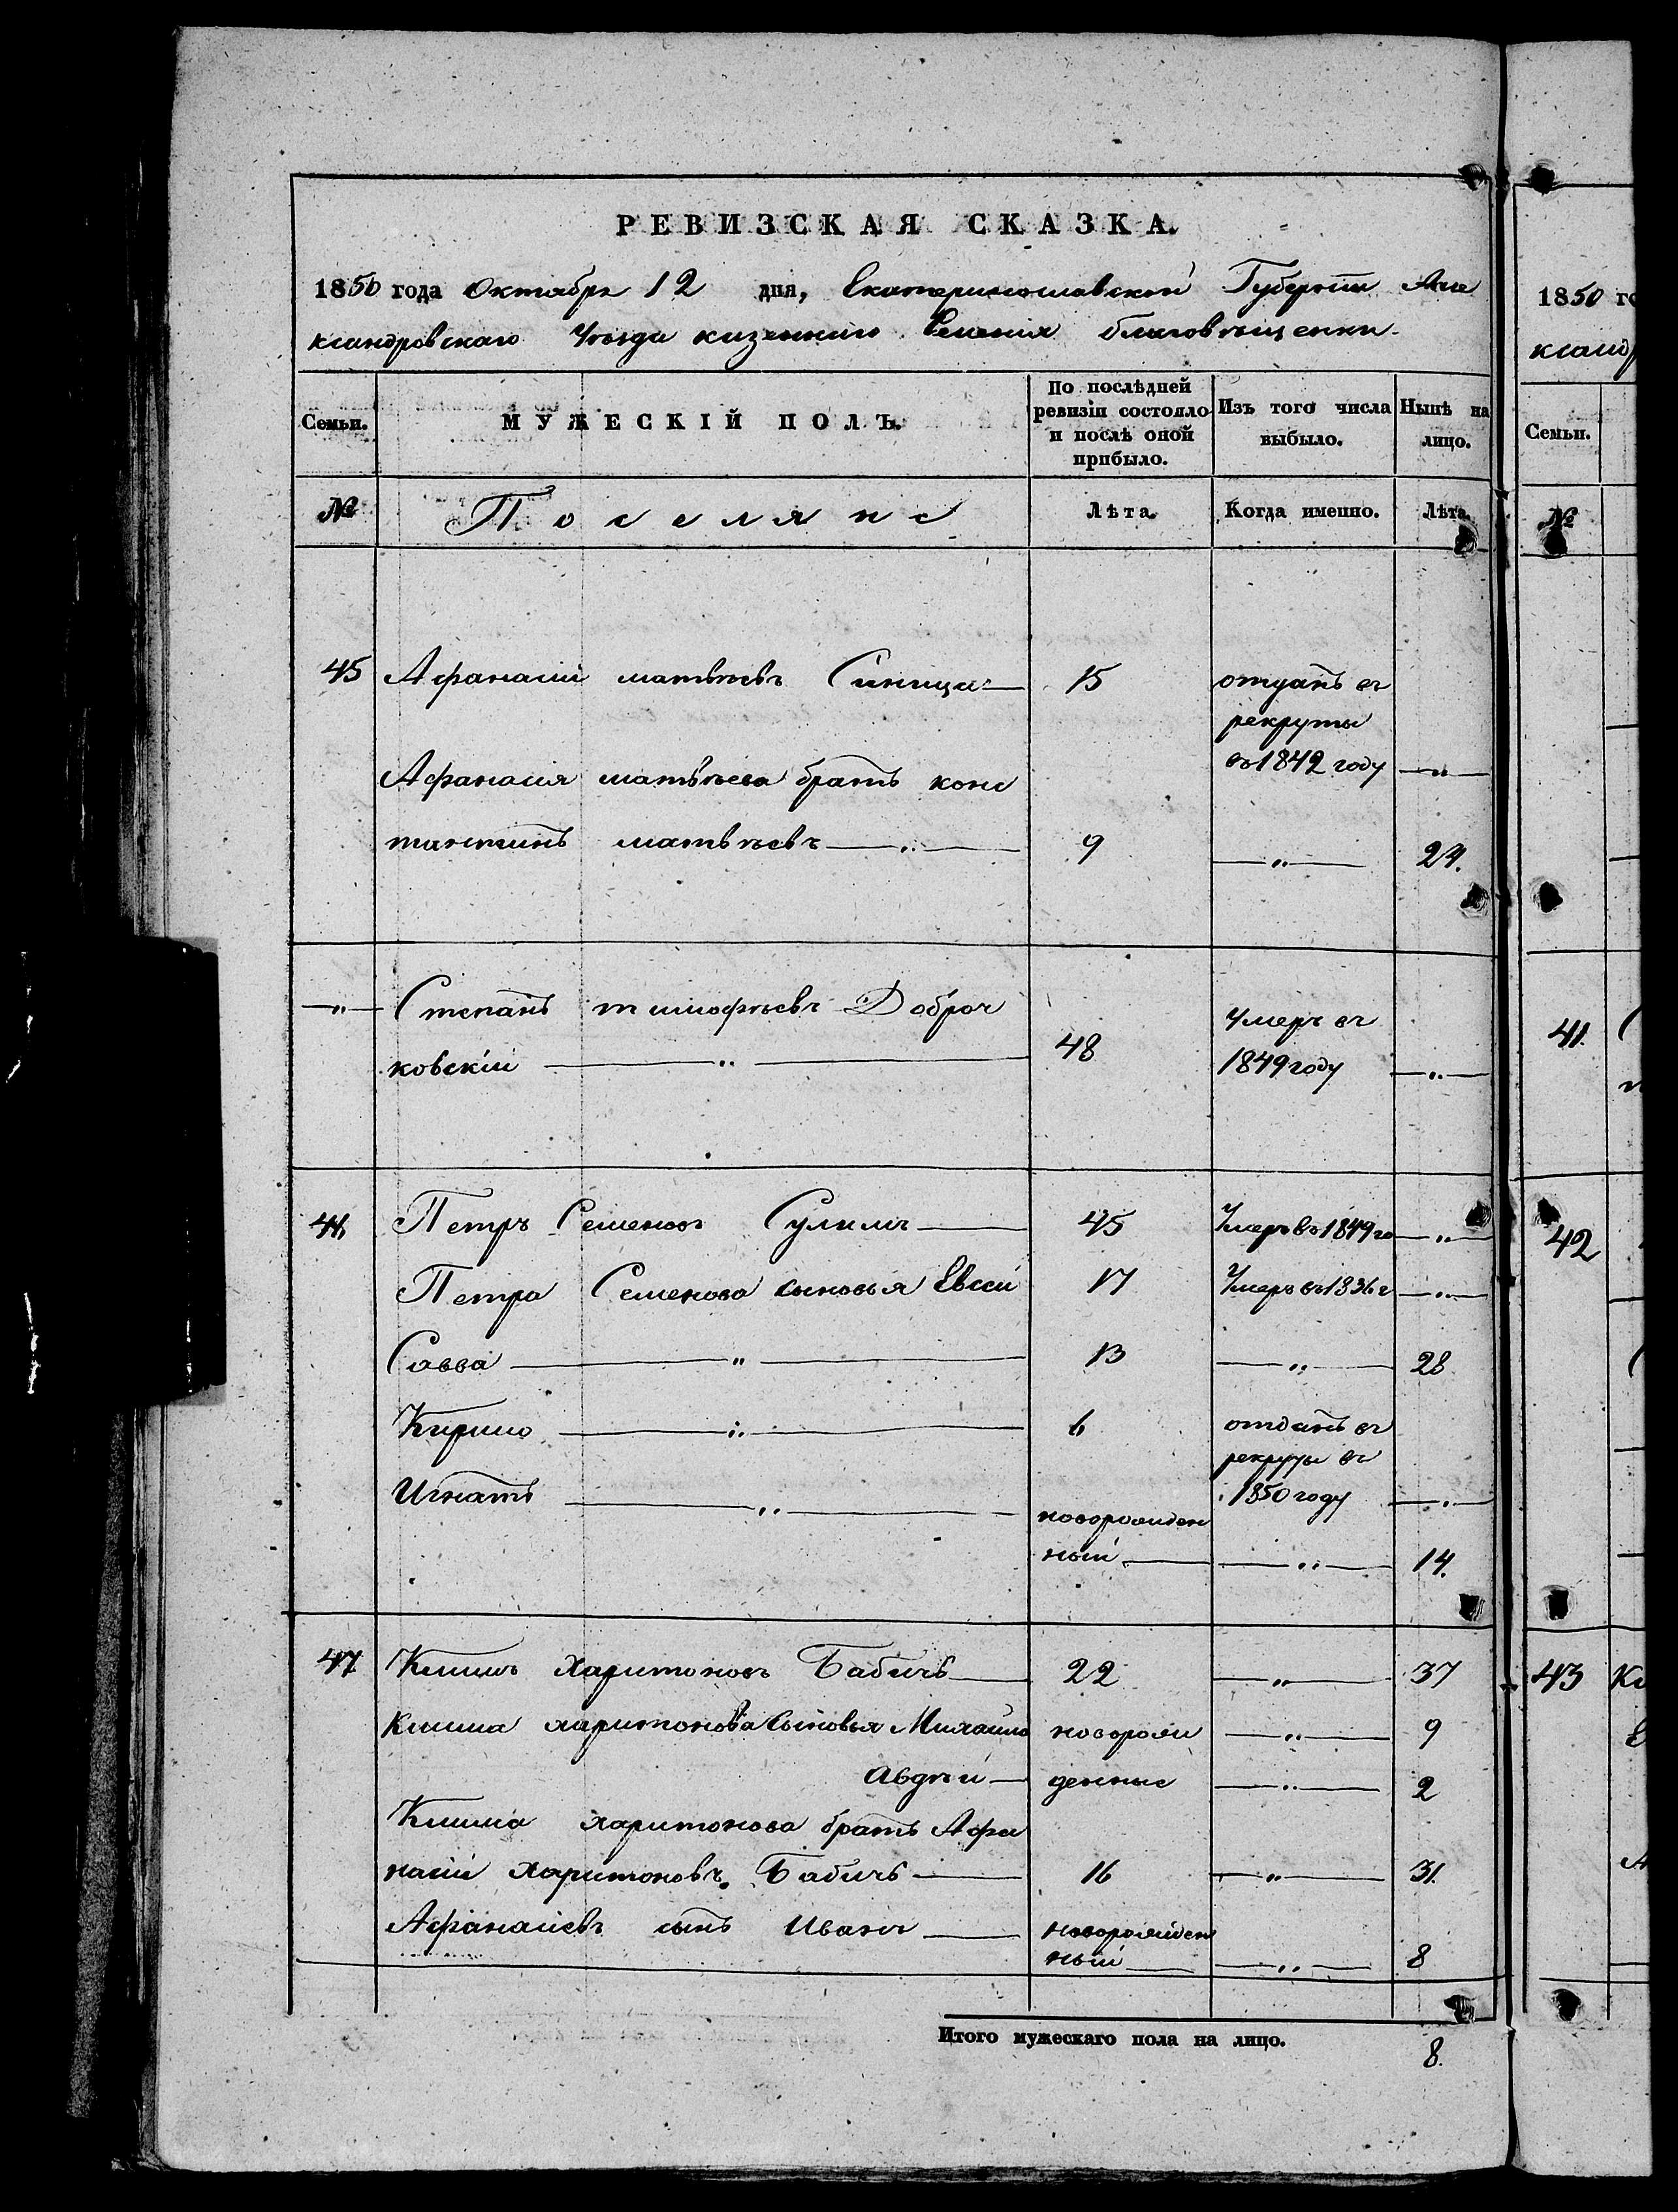 РЕВИЗСКАЯ СКАЗКА.
1850 года Октября 12 дня, Екатеринославской Губернiи Але
ксандровскаго Уѣзда казеннаго Селенiя благовѣщенки
Семьи. МУЖЕСКIЙ ПОЛЪ. По послѣдней ревизiи состояло и послѣ оной прибыло. Изъ того числа выбыло. Нынѣ на лицо.
№ Поселяне Лѣта. Когда именно. Лѣта.
45 Афанасiй матвѣевъ Синица 15 отданъ въ
рекруты
въ 1842 году —„—
Афанасiя матвѣева братъ конс
тантинъ матвѣевъ —„— 9 —„— 24.
—„— Степанъ тимофѣевъ Доброч
ковскiй —„— 48 умеръ въ
1849 году —„—
Петръ Семеновъ Сулима 45 Умеръ въ 1849 го —„—
Петра Семенова сыновья Евсей 17 Умеръ въ 1836 г —„—
Савва —„— 13 —„— 28
Кирило —„— 6 отданъ въ
рекруты въ
1850 году —„—
Игнатъ —„— новорожден
ный —„— 14.
47 Климъ Харитоновъ Бабичъ 22 —„— 37
Клима харитонова Сыновья Михайло новорож —„— 9
Авдѣй денные —„— 2
Клима харитонова братъ Афа
насiй Харитоновъ Бабичъ 16 —„— 31.
Афанасiевъ сынъ Иванъ новорожден
ный —„— 8
Итого мужескаго пола на лицо.
8.
1850 го
ксанд
Семьи.
№
41.
42
43 Кл